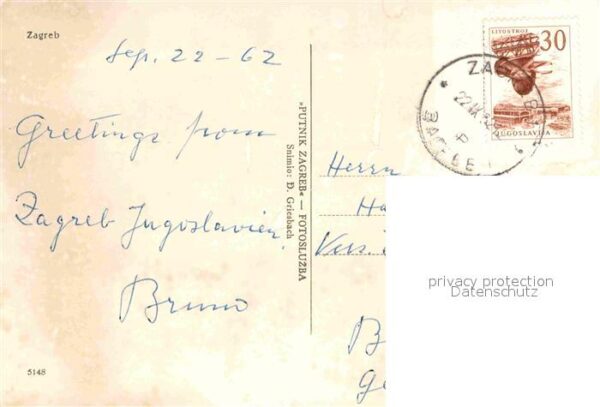 Zagreb
Sep. 22-62
Greetings from
Zagreb Jugoslavien.
Bruno
5148
»PUTNIK ZAGREB« — FOTOSLUŽBA
Snimio: Đ. Griesbach
LITOSTROJ
30
JUGOSLAVIJA
ZAG
22.IX.
Herrn
Ha
B
Ge
privacy protection
Datenschutz